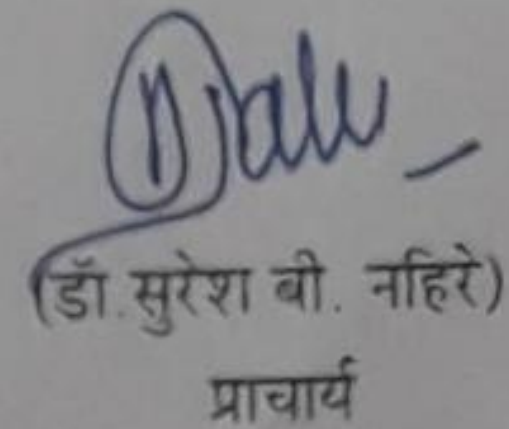 (डॉ. सुरेश बी. नहिरे)
प्राचार्य